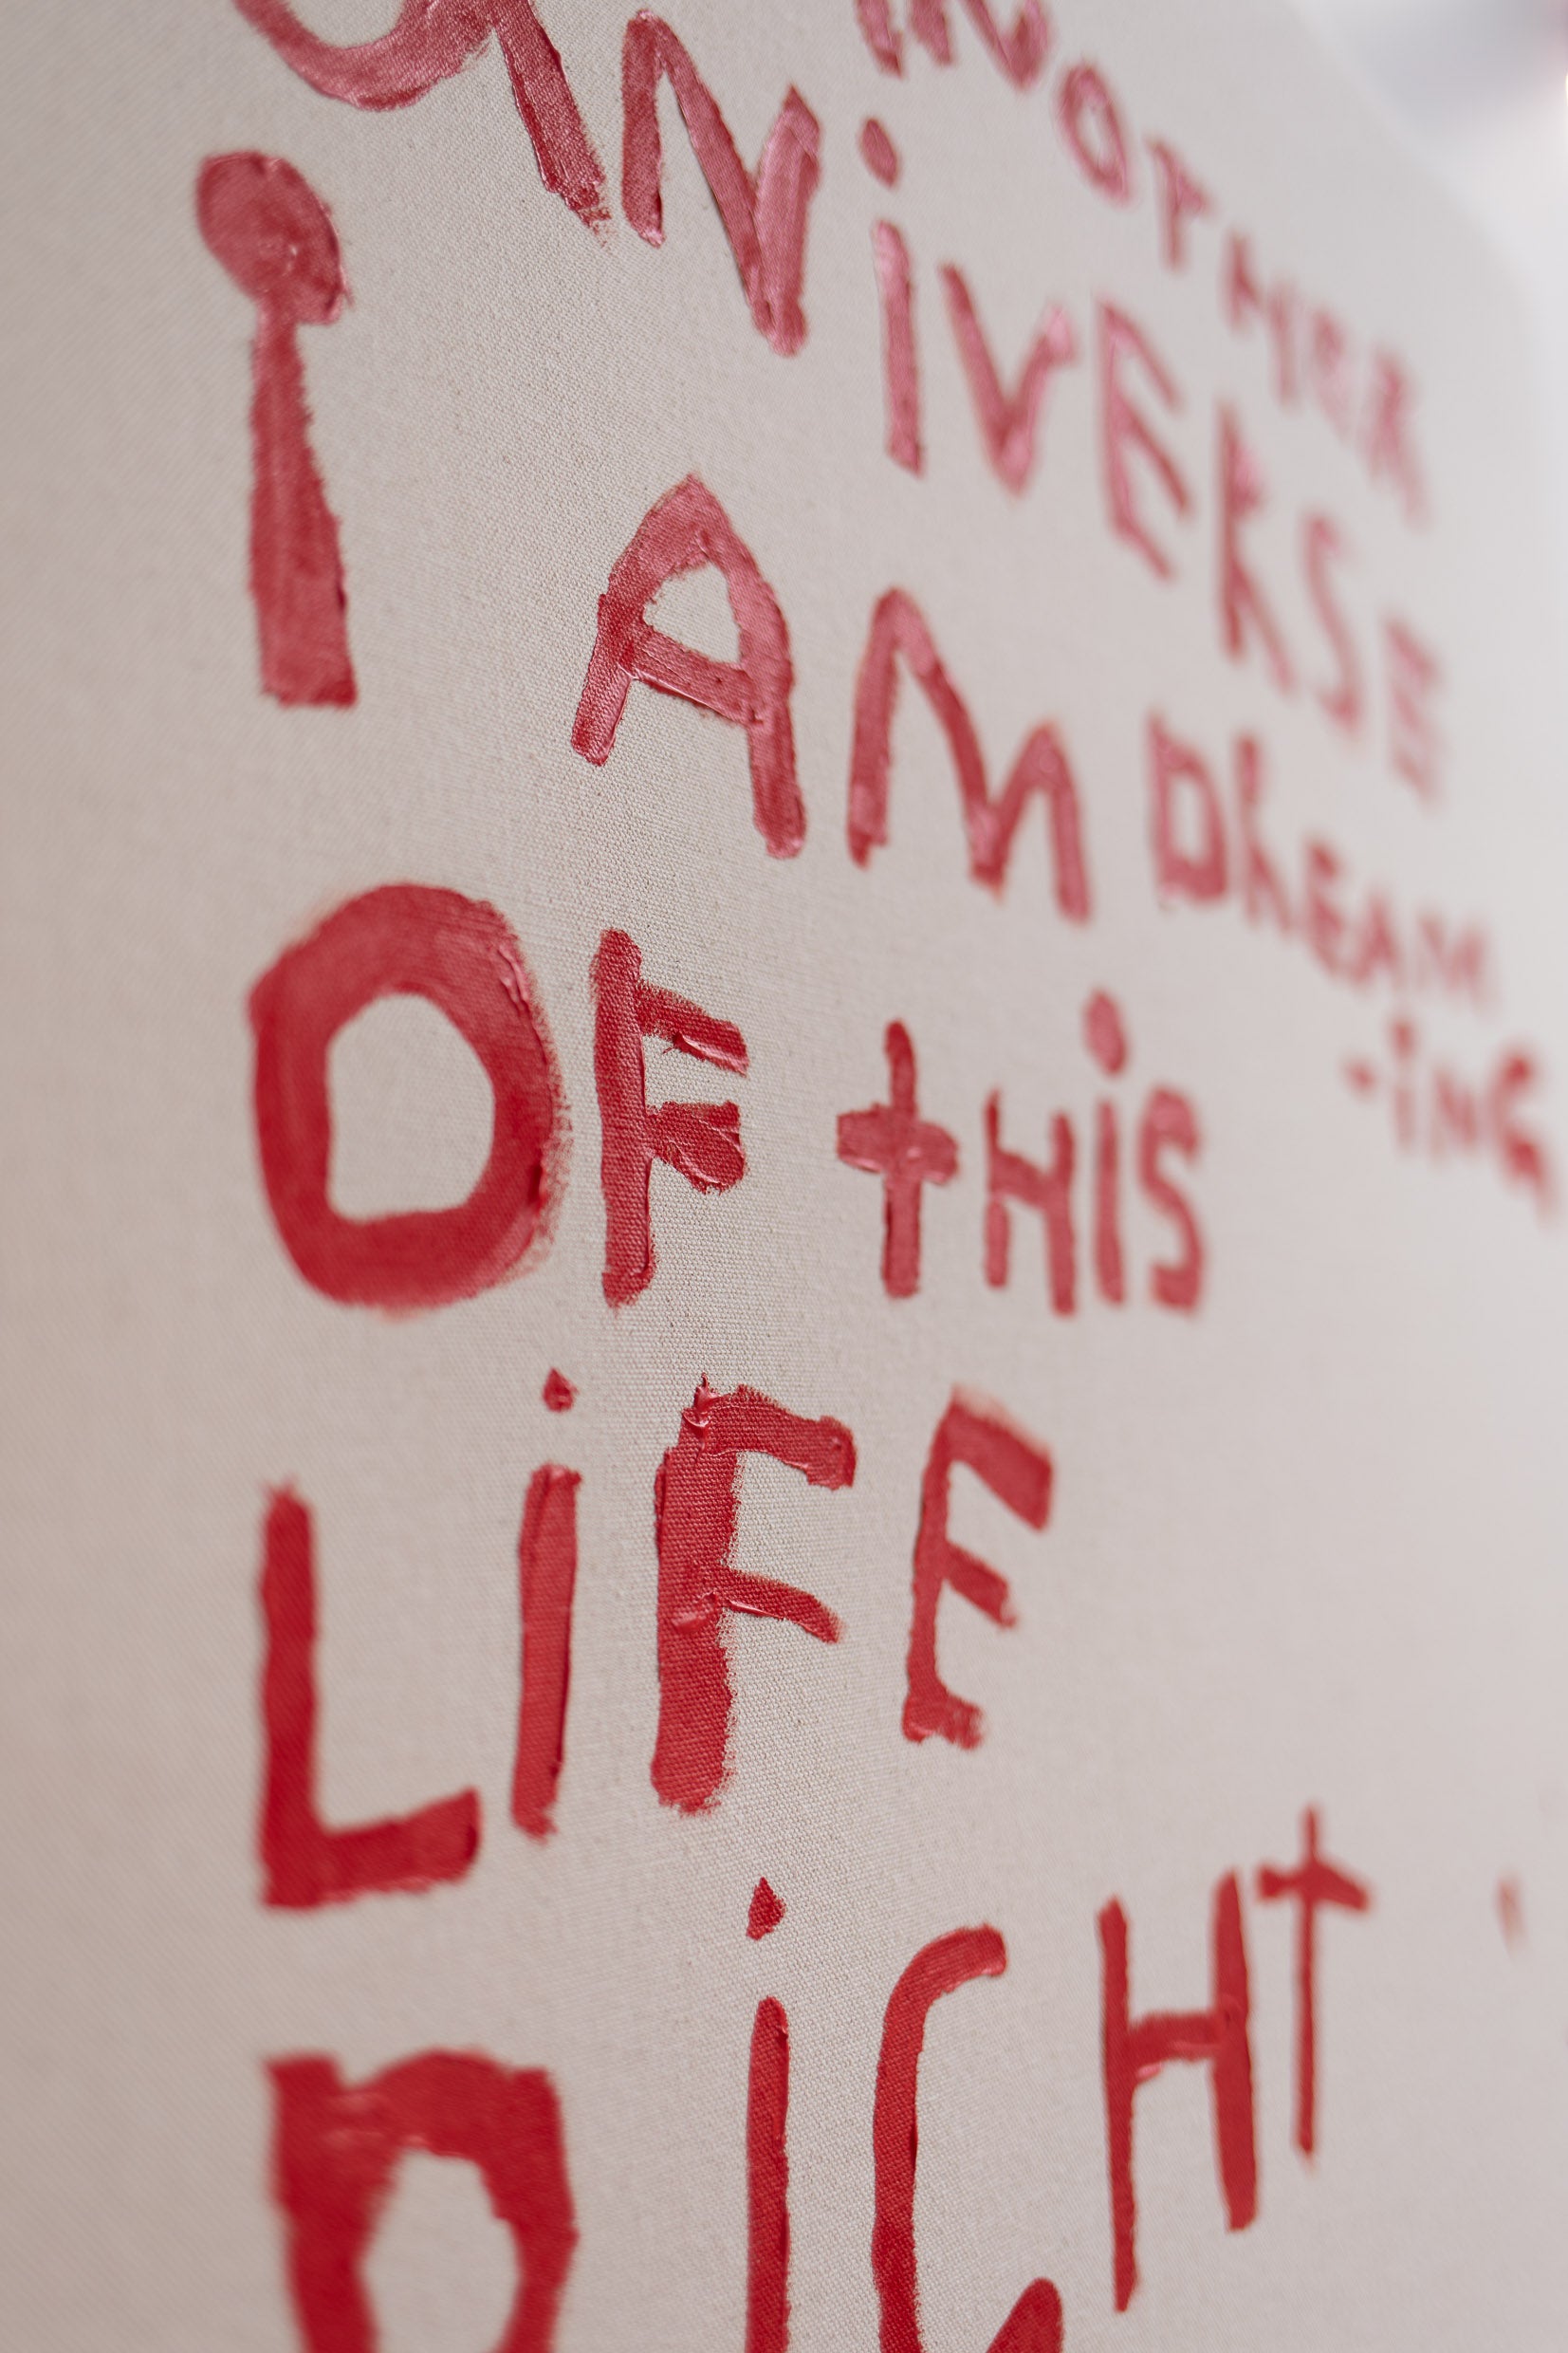 ANOTHER
UNIVERSE
i AM DREAM
-iNG
OF tHiS
LiFE
RiGHt